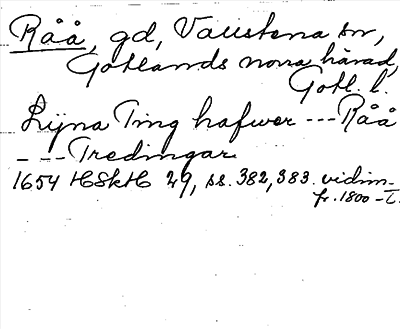 Råå, gd, Vallstena sn,
Gotlands norra härad,
Gotl. l.
Lijna Ting hafwer --- Råå
--- Tredingar.
1654 HSkH 29, ss. 382, 383. vidim.
fr. 1800-t.